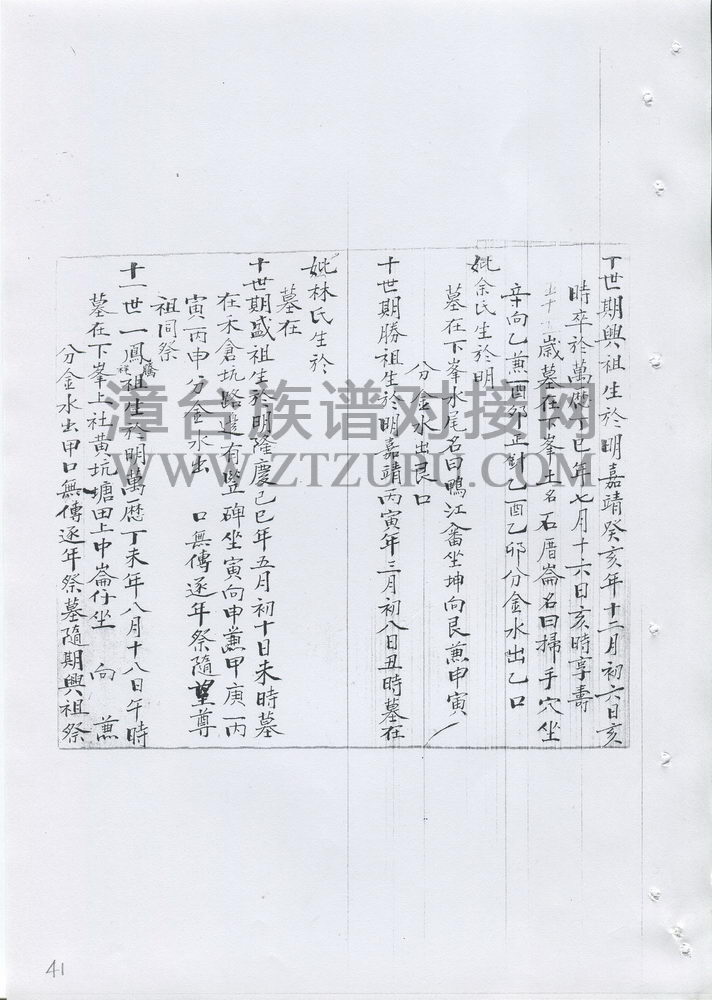 十世期興祖生於明嘉靖癸亥年十二月初六日亥
時卒於萬曆丁巳年七月十六日亥時享壽
五十五歲墓在下峯土名石厝崙名曰掃手穴坐
辛向乙兼酉卯正針乙酉乙卯分金水出乙口
妣余氏生於明
墓在下峯水尾名曰鴨江畲坐坤向艮兼申寅
分金水出艮口
十世期勝祖生於明嘉靖丙寅年三月初八日丑時墓在
妣林氏生於
墓在
十世期盛祖生於明隆慶己巳年五月初十日未時墓
在禾倉坑路邊有豎碑坐寅向申兼甲庚一丙
寅丙申分金水出 口無傳逐年祭隨望尊
祖同祭
十一世一鳳祖生於明萬曆丁未年八月十八日午時
墓在下峯上社黃坑塘田上中崙仔坐 向 兼
分金水出甲口無傳逐年祭墓隨期興祖祭
漳台族谱对接网
WWW.ZTZUPU.COM
41